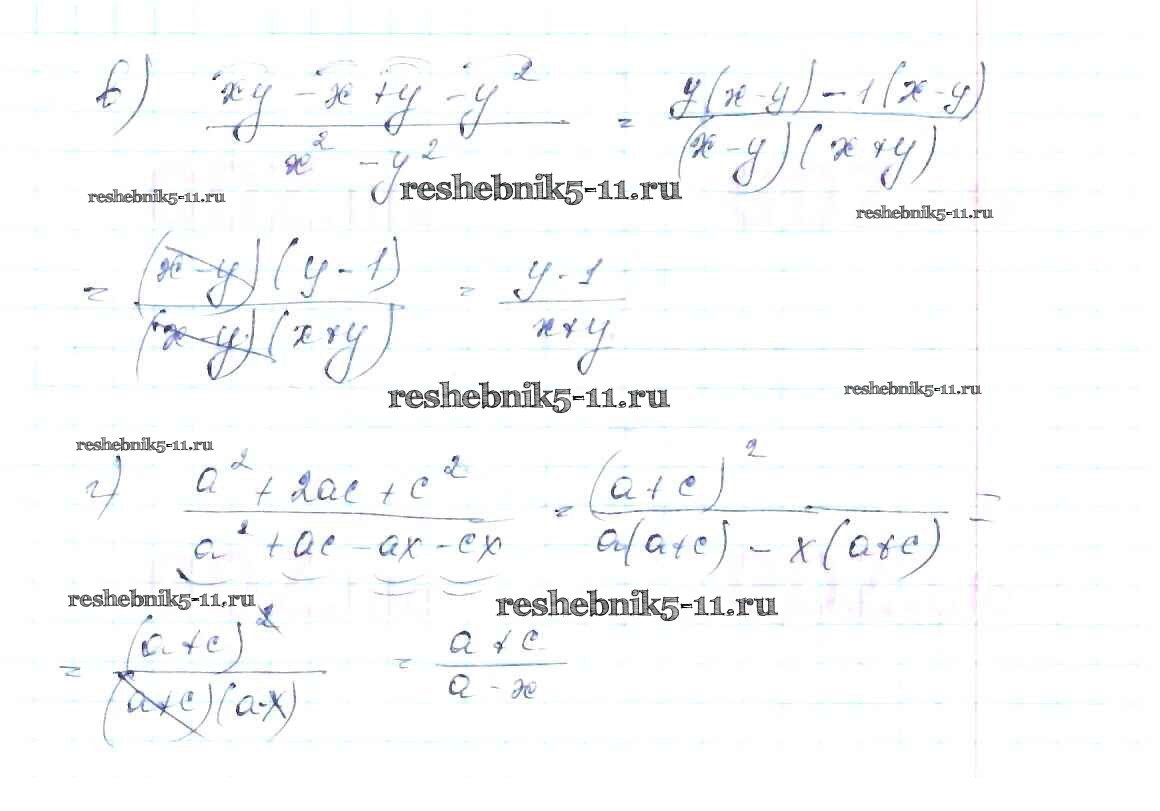 в) (xy - x + y - y²)/(x² - y²) = (y(x-y) - 1(x-y))/((x-y)(x+y))
reshebnik5-11.ru reshebnik5-11.ru reshebnik5-11.ru
= ((x-y)(y-1))/((x-y)(x+y)) = (y-1)/(x+y)
reshebnik5-11.ru reshebnik5-11.ru
reshebnik5-11.ru
г) (a² + 2ac + c²)/(a² + ac - ax - cx) = (a+c)²/(a(a+c) - x(a+c)) =
reshebnik5-11.ru reshebnik5-11.ru
= (a+c)²/((a+c)(a-x)) = (a+c)/(a-x)